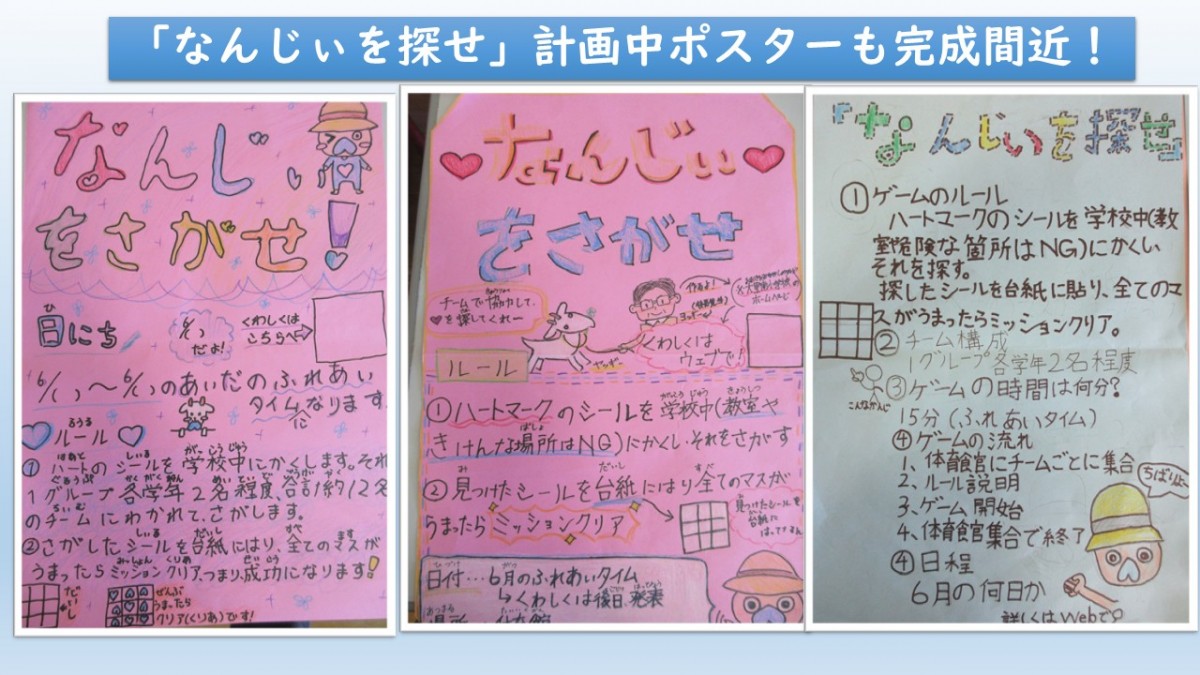 「なんじぃを探せ」計画中ポスターも完成間近！
なんじぃ
をさがせ!
ひ
日にち
だよ!
くわしくは
こちらへ
6/ 〜6/ のあいだのふれあい
タイムになります。
るうる
ルール
はあと しいる がっこうじゅう
①ハートのシールを学校中にかくします。それ
ぐるうぷ かくがくねん
1グループ各学年2名程度、合計約12名
ちいむ
のチームにわかれて、さがします。
しいる だいし すべ ます
②さがしたシールを台紙にはり、全てのマスが
みっしょん くりあ せいこう
うまったらミッションクリアつまり、成功になります!
だいし
ぜんぶ
うまったら
クリア(くりあ)です!
なんじぃ
をさがせ
チームで協力して、
を探してくれー
くわしくは
ウェブで!
ルール
がっこうじゅう きょうしつ
①ハートマークのシールを学校中(教室や
ばしょ
きけんな場所はNG)にかくし、それをさがす
み だいし すべ
②見つけたシールを台紙にはり全てのマスが
うまったらミッションクリア
見つけたシールを
台紙に
ひづけ
日付…6月のふれあいタイム
↳くわしくは後日、発表
「なんじぃを探せ」
①ゲームのルール
ハートマークのシールを学校中(教
室危険な箇所はNG)にかくい
それを探す。
探したシールを台紙に貼り、全てのマ
スがうまったらミッションクリア。
②チーム構成
1グループ各学年2名程度
③ゲームの時間は何分?
こんなかんじ
15分(ふれあいタイム)
④ゲームの流れ
1、体育館にチームごとに集合
2、ルール説明
3、ゲーム開始
4、体育館集合で終了
ちばりよー
④日程
6月の何日か
詳しくはWebで